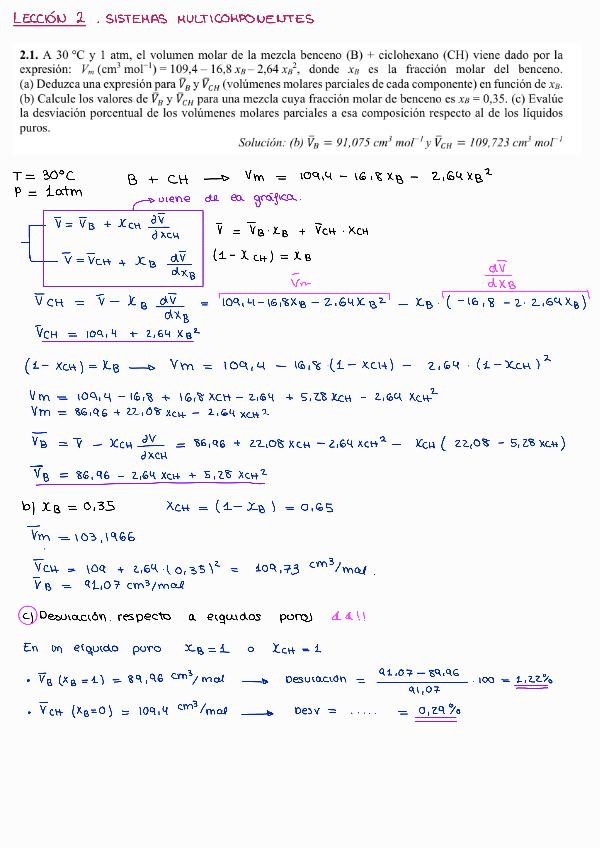 LECCIÓN 2. SISTEMAS MULTICOMPONENTES
2.1. A 30 °C y 1 atm, el volumen molar de la mezcla benceno (B) + ciclohexano (CH) viene dado por la
expresión: Vₘ (cm³ mol⁻¹) = 109,4 – 16,8 x_B – 2,64 x_B², donde x_B es la fracción molar del benceno.
(a) Deduzca una expresión para V̄_B y V̄_CH (volúmenes molares parciales de cada componente) en función de x_B.
(b) Calcule los valores de V̄_B y V̄_CH para una mezcla cuya fracción molar de benceno es x_B = 0,35. (c) Evalúe
la desviación porcentual de los volúmenes molares parciales a esa composición respecto al de los líquidos
puros.
Solución: (b) V̄_B = 91,075 cm³ mol⁻¹ y V̄_CH = 109,723 cm³ mol⁻¹
T = 30°C
P = 1atm
B + CH → Vm = 109,4 - 16,8 x_B - 2,64 x_B²
→ viene de la gráfica.
V̄ = V̄_B + x_CH ∂V̄/∂x_CH
V̄ = V̄_B · x_B + V̄_CH · x_CH
V̄ = V̄_CH + x_B dV̄/dx_B
(1 - x_CH) = x_B
V̄m
dV̄/dx_B
V̄_CH = V̄ - x_B dV̄/dx_B = 109,4 - 16,8x_B - 2,64x_B² - x_B · (-16,8 - 2·2,64x_B)
V̄_CH = 109,4 + 2,64 x_B²
(1 - x_CH) = x_B → Vm = 109,4 - 16,8 · (1 - x_CH) - 2,64 · (1 - x_CH)²
Vm = 109,4 - 16,8 + 16,8 x_CH - 2,64 + 5,28 x_CH - 2,64 x_CH²
Vm = 86,96 + 22,08 x_CH - 2,64 x_CH²
V̄_B = V̄ - x_CH ∂V/∂x_CH = 86,96 + 22,08 x_CH - 2,64 x_CH² - x_CH (22,08 - 5,28 x_CH)
V̄_B = 86,96 - 2,64 x_CH + 5,28 x_CH²
b) x_B = 0,35 x_CH = (1 - x_B) = 0,65
V̄m = 103,1966
V̄_CH = 109 + 2,64 · (0,35)² = 109,73 cm³/mol.
V̄_B = 91,07 cm³/mol
c) Desviación respecto a líquidos puros ↓↓!!
En un líquido puro x_B = 1 o x_CH = 1
• V̄_B (x_B = 1) = 89,96 cm³/mol → Desviación = (91,07 - 89,96)/91,07 · 100 = 1,22%
• V̄_CH (x_B = 0) = 109,4 cm³/mol → Desv = ..... = 0,29%